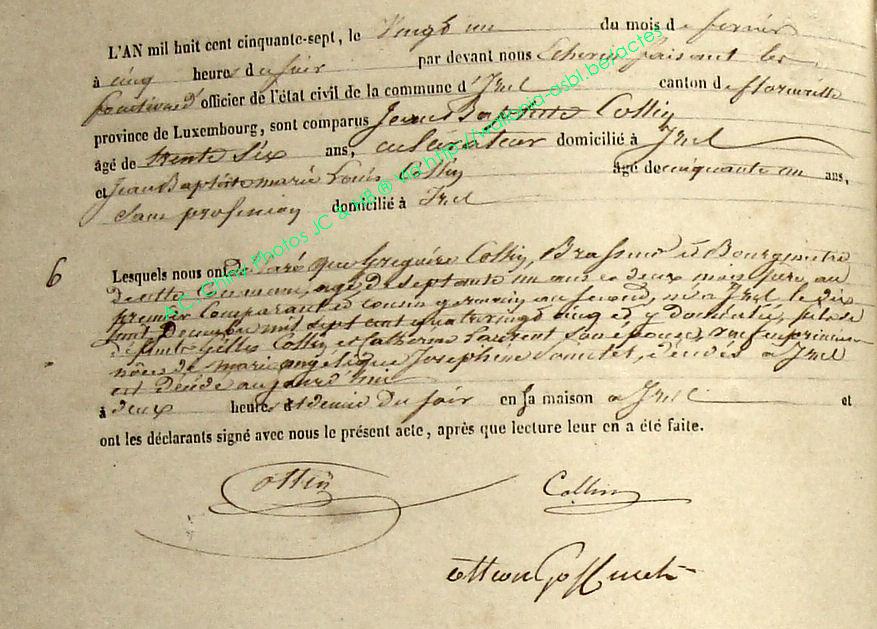 L'AN mil huit cent cinquante-sept, le Vingt un du mois de fevrier
à cinq heures du soir par devant nous Echevin faisant les
fonctions d'officier de l'état civil de la commune d'Izel canton de florenville
province de Luxembourg, sont comparus Jean Baptiste Collin
âgé de trente six ans, cultivateur domicilié à Izel
et Jean Baptiste marie Louis Collin âgé de cinquante un ans,
Sans profession domicilié à Izel
6 Lesquels nous ont déclaré que Grégoire Collin, Brasseur et Bourgmestre
de cette commune, agé de septante un ans et deux mois, pere au
premier Comparant et cousin germain au second, né à Izel le dix
Decembre mil sept cent quatre vingt cinq et y domicilié, fils de
Collin et Catherine Laurent Son épouse, veuf en premieres
nôces de marie angélique Josephine décédée à Izel
est décédé aujourd'hui
à deux heures et demie du soir en sa maison à Izel et
ont les déclarants signé avec nous le présent acte, après que lecture leur en a été faite.
Collin Collin
A.C. Chiny Photos JC & MB ® Vic http://wallonia-asbl.be/actes